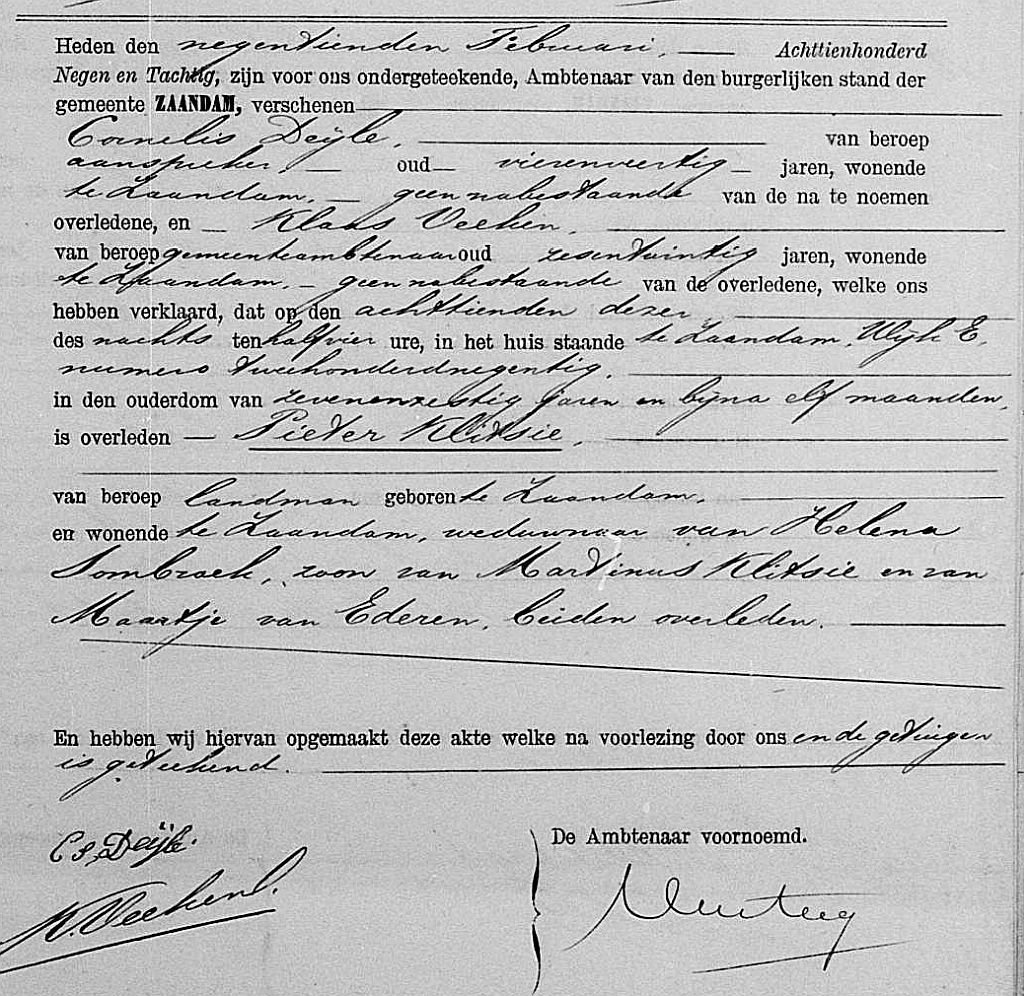 Heden den negentienden Februari, Achttienhonderd
Negen en Tachtig, zijn voor ons ondergeteekende, Ambtenaar van den burgerlijken stand der
gemeente ZAANDAM, verschenen
Cornelis Deijle, van beroep
aanspreker, oud vierenveertig jaren, wonende
te Zaandam, geen nabestaande van de na te noemen
overledene, en Klaas Veeken,
van beroep gemeenteambtenaar oud zesentwintig jaren, wonende
te Zaandam, geen nabestaande van de overledene, welke ons
hebben verklaard, dat op den achttienden dezer
des nachts ten half vier ure, in het huis staande te Zaandam, Wijk E,
numero tweehonderdnegentig,
in den ouderdom van zevenenzestig jaren en bijna elf maanden,
is overleden Pieter Klitsie,
van beroep landman geboren te Zaandam,
en wonende te Zaandam, weduwnaar van Helena
Sombroek, zoon van Martinus Klitsie en van
Maartje van Ederen, beiden overleden.
En hebben wij hiervan opgemaakt deze akte welke na voorlezing door ons en de getuigen
is geteekend.
Cs. Deijle.
De Ambtenaar voornoemd.
K. Veeken